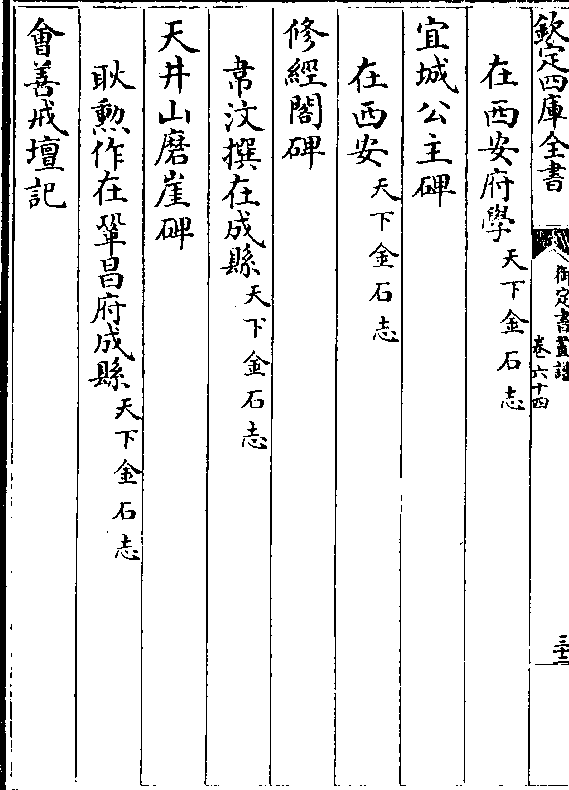 欽定四庫全書
御定書畫譜
卷六十四
三十二
在西安府學天下金石志
宜城公主碑
在西安天下金石志
修經閣碑
韋汶撰在成縣天下金石志
天井山磨崖碑
耿勲作在鞏昌府成縣天下金石志
會善戒壇記